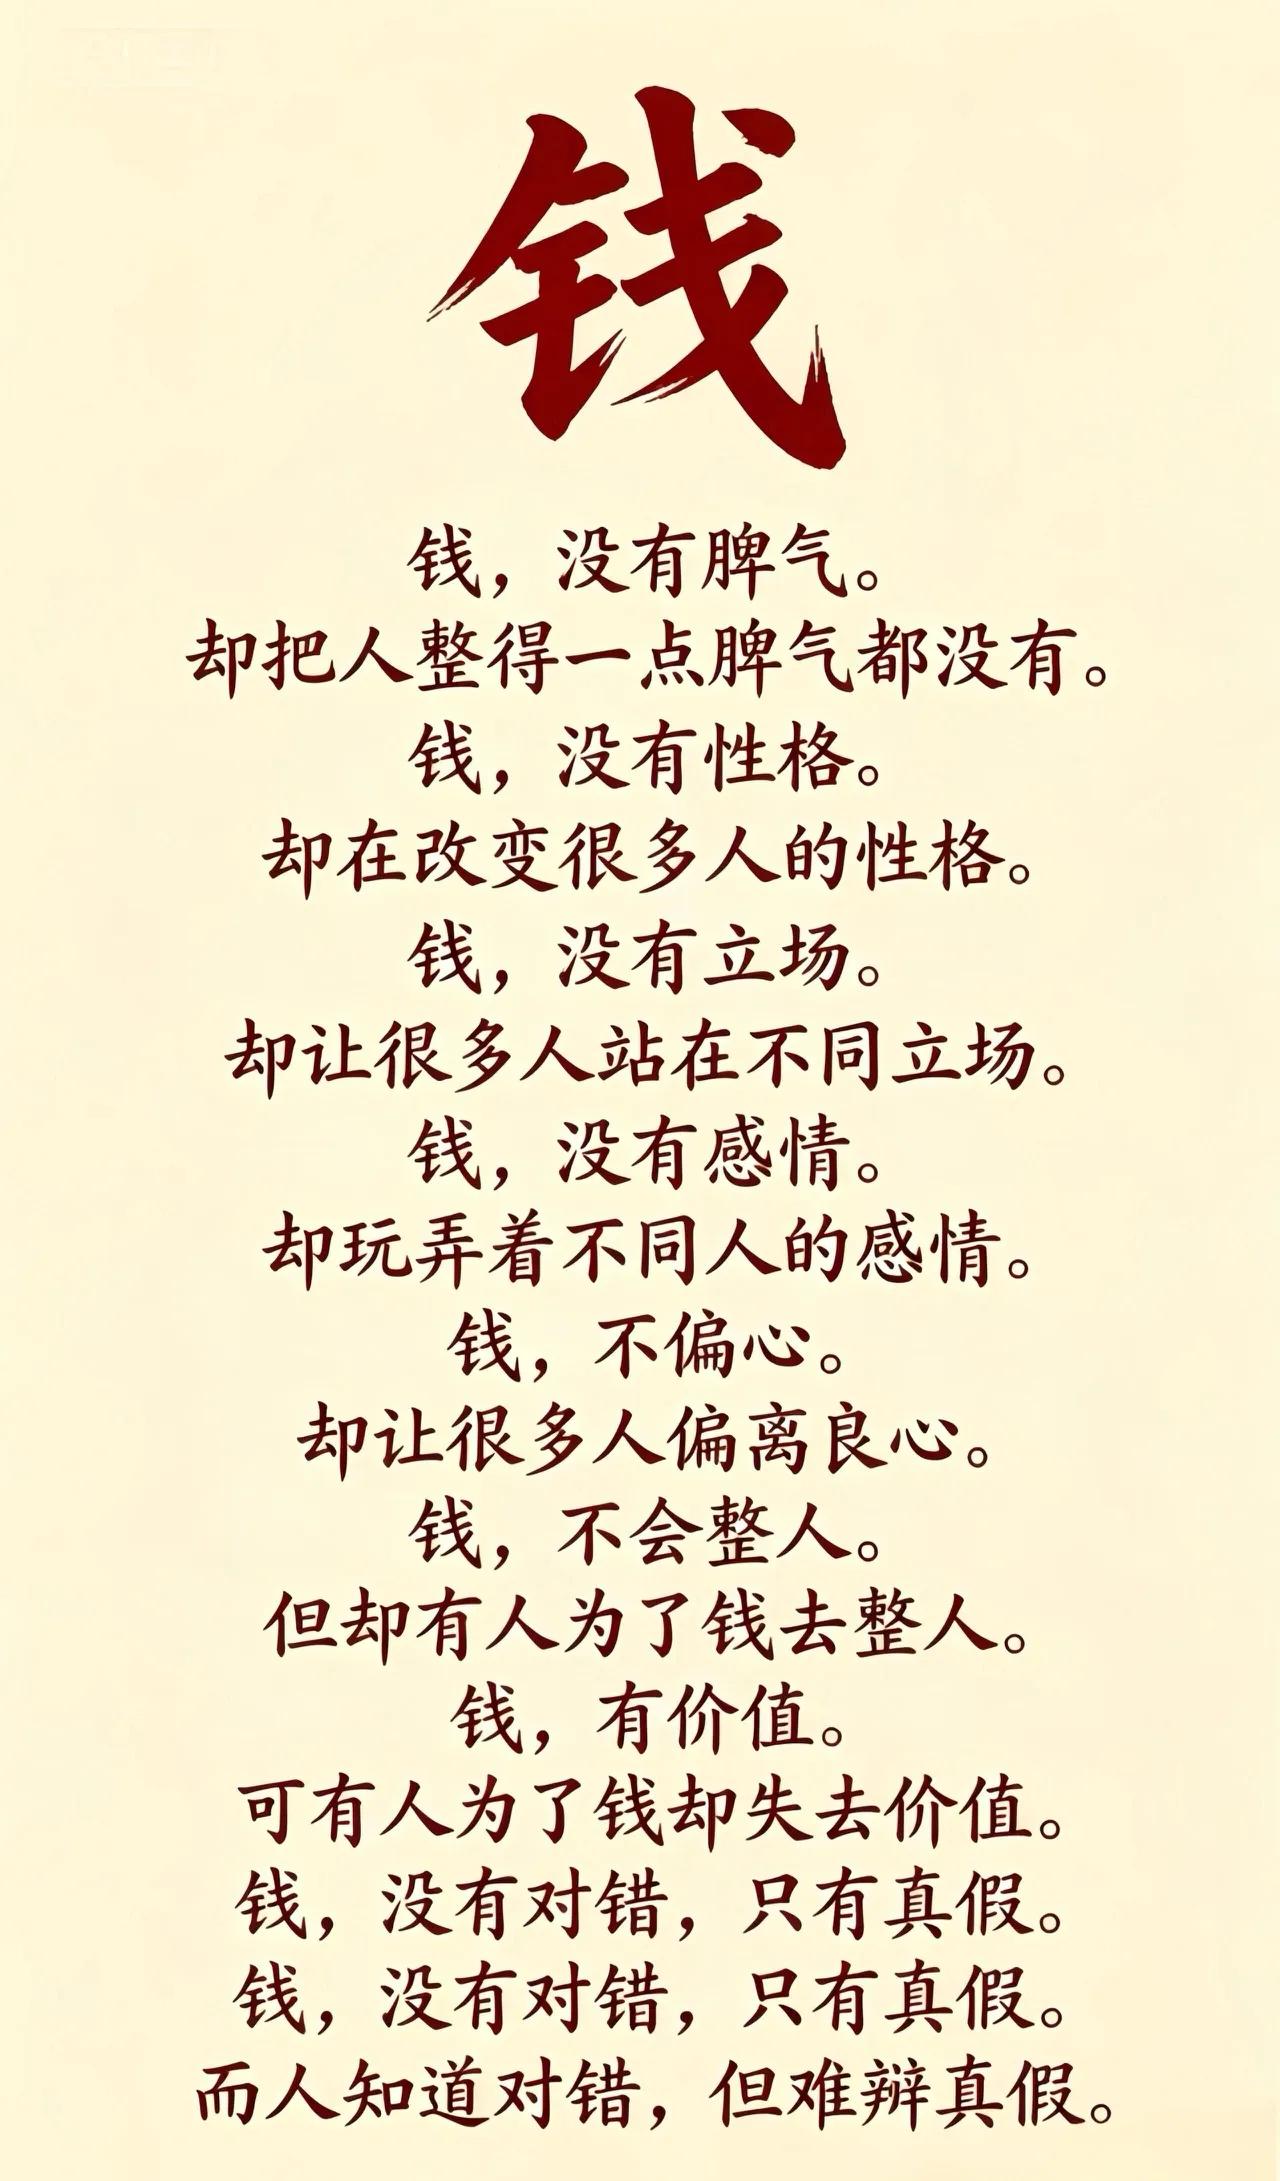 钱
钱，没有脾气。
却把人整得一点脾气都没有。
钱，没有性格。
却在改变很多人的性格。
钱，没有立场。
却让很多人站在不同立场。
钱，没有感情。
却玩弄着不同人的感情。
钱，不偏心。
却让很多人偏离良心。
钱，不会整人。
但却有人为了钱去整人。
钱，有价值。
可有人为了钱却失去价值。
钱，没有对错，只有真假。
钱，没有对错，只有真假。
而人知道对错，但难辨真假。